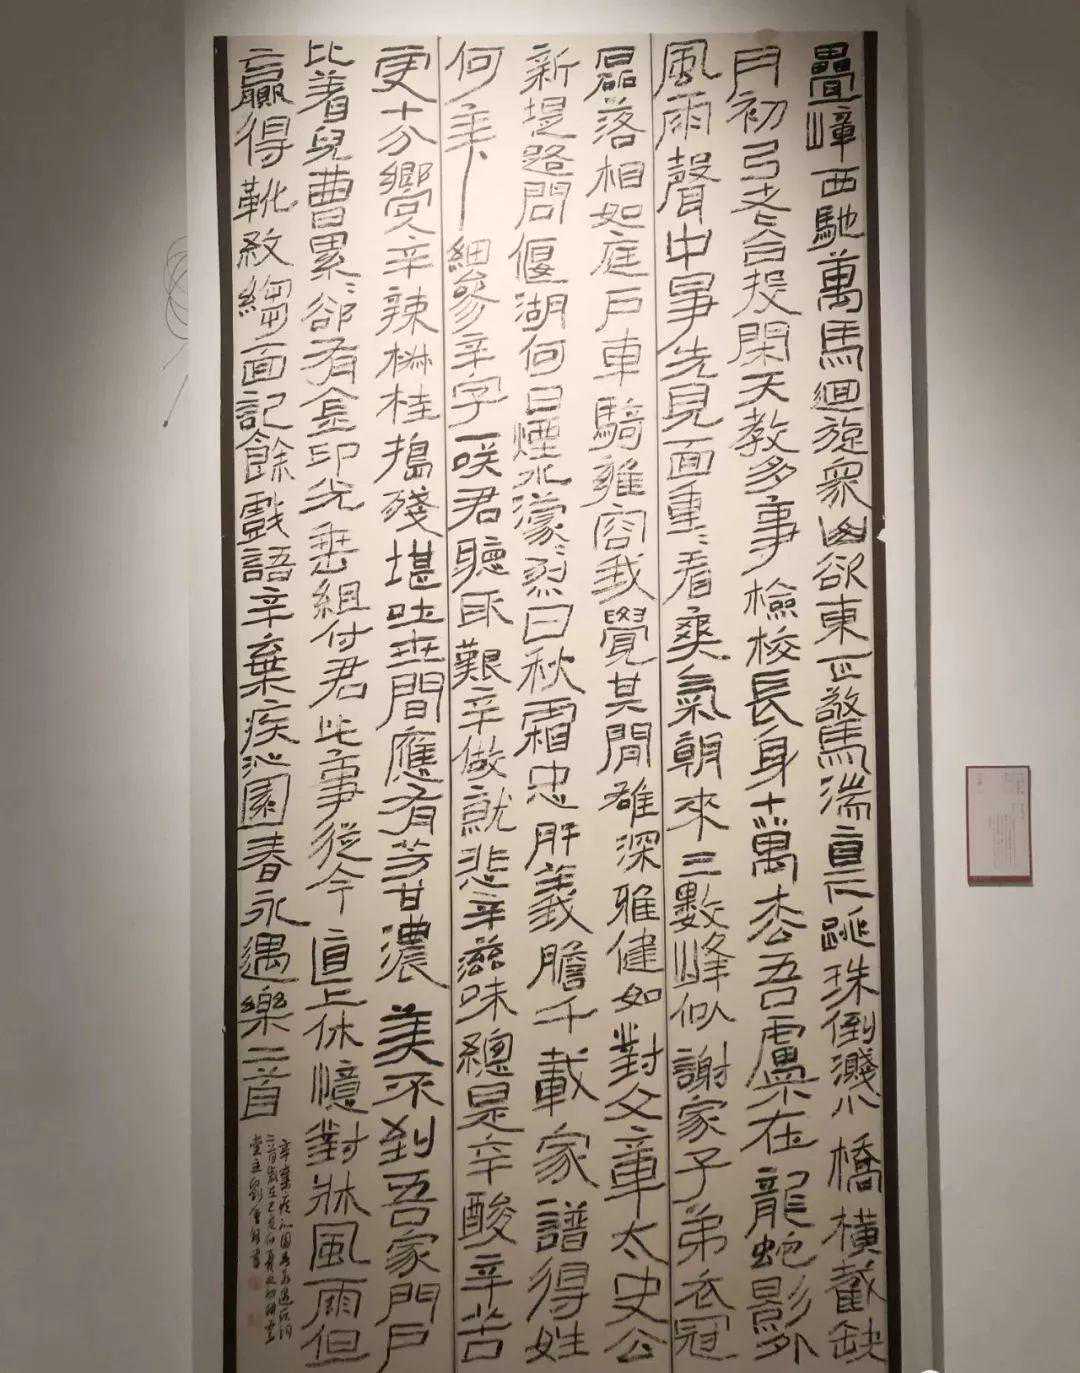 疊嶂西馳萬馬迴旋眾山欲東正驚湍直下跳珠倒濺小橋橫截缺
月初弓老合投閑天教多事檢校長身十萬松吾廬在龍蛇影外
風雨聲中爭先見面重〻看爽氣朝來三數峰似謝家子弟衣冠
磊落相如庭戶車騎雍容我覺其間雄深雅健如對文章太史公
新堤路問偃湖何日煙水濛〻烈日秋霜忠肝義膽千載家譜得姓
何年細參辛字一咲君聽取艱辛做就悲辛滋味總是辛酸辛苦
更十分嚮人辛辣椒桂搗殘堪吐世間應有芳甘濃美不到吾家門戶
比着兒曹累〻卻有金印光垂組付君此事從今直上休憶對牀風雨但
贏得靴紋縐面記餘戲語辛棄疾沁園春永遇樂二首
辛棄疾沁園春永遇樂詞
二首歲在己亥仲夏之初
堂主劉書